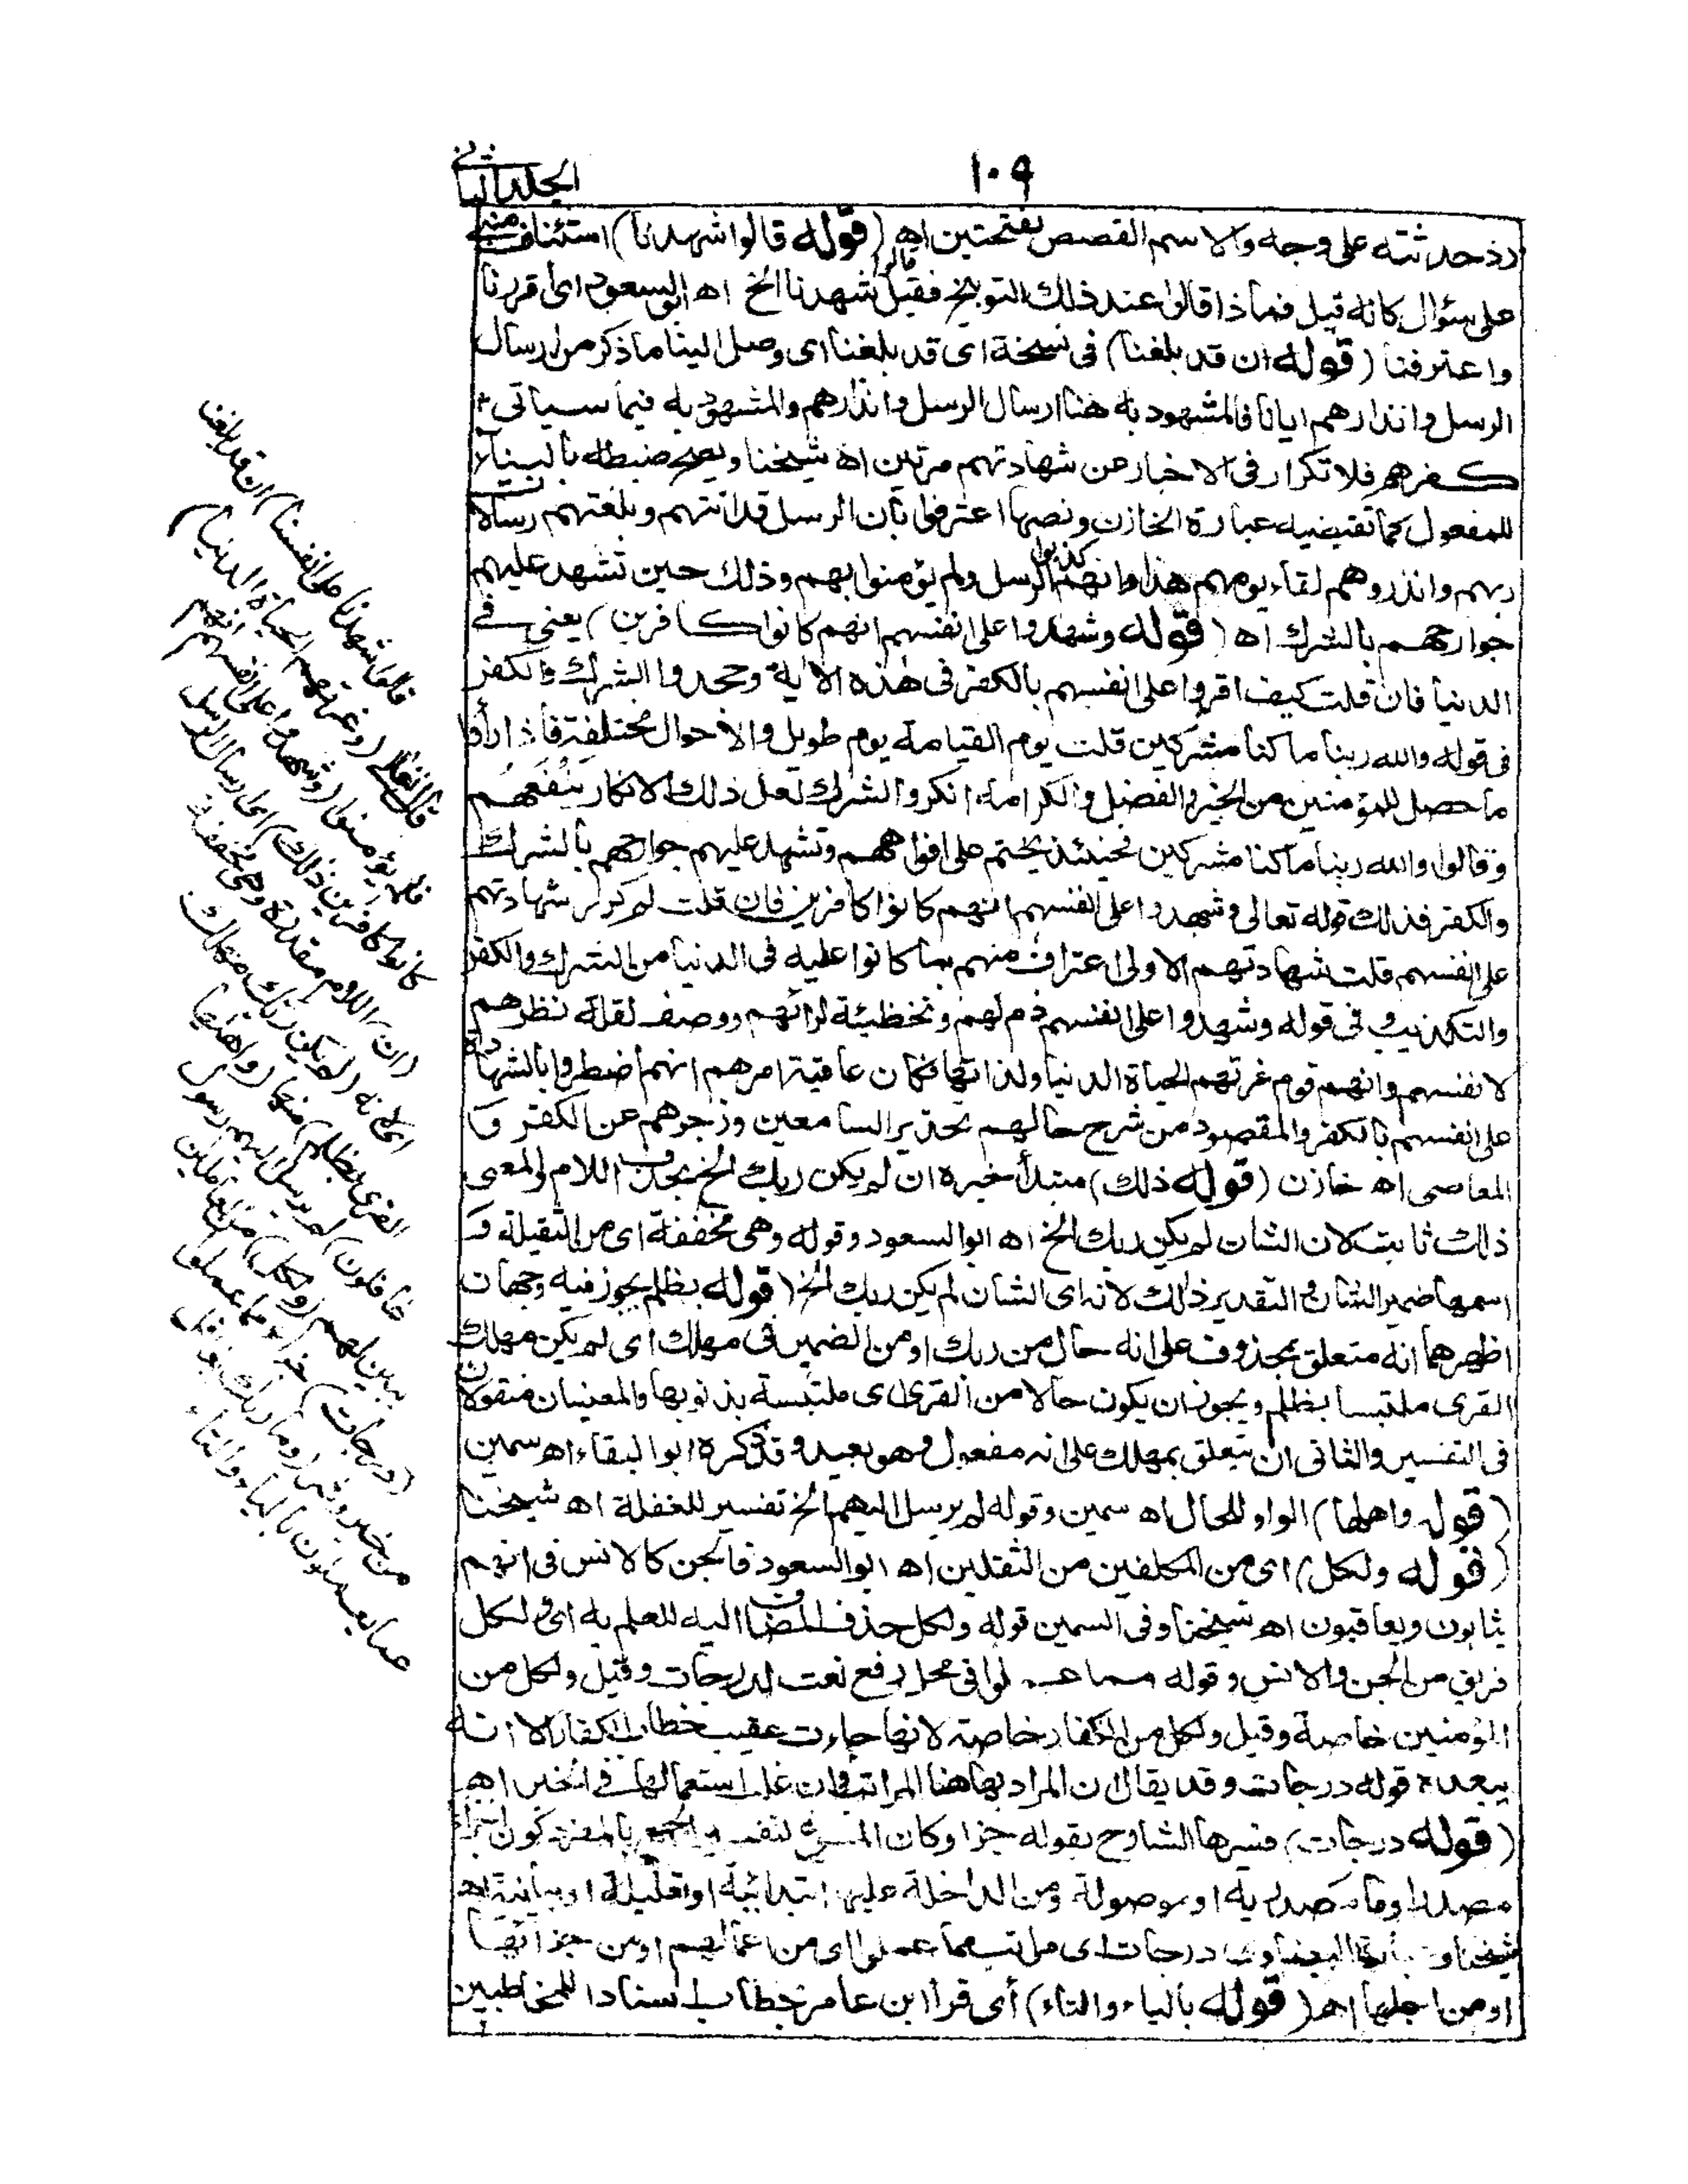 ١٠٩
الجلد الثانى
اذ حدثته على وجهه والاسم القصص بفتحتين اه (قوله قالوا شهدنا) استئناف مبنى
على سؤال كانه قيل فماذا قالوا عند ذلك التوبيخ فقيل قالوا شهدنا الخ اه ابو السعود اى اقررنا
واعترفنا (قوله ان قد بلغنا) فى نسخة اى قد بلغنا اى وصل الينا ما ذكر من ارسال
الرسل وانذارهم ايانا فالمشهود به هنا ارسال الرسل وانذارهم والمشهود به فيما سياتى
كفرهم فلا تكرار فى الاخبار عن شهادتهم مرتين اه شيخنا ويصح ضبطه بالبناء
للمفعول كما تقتضيه عبارة الخازن ونصها اعترفوا بأن الرسل قد اتتهم وبلغتهم رسالات
ربهم وانذروهم لقاء يومهم هذا وانهم كذبوا الرسل ولم يؤمنوا بهم وذلك حين تشهد عليهم
جوارحهم بالشرك اه (قوله وشهدوا على انفسهم انهم كانوا كافرين) يعنى فى
الدنيا فان قلت كيف اقروا على انفسهم بالكفر فى هذه الآية وجحدوا الشرك والكفر
فى قوله والله ربنا ما كنا مشركين قلت يوم القيامة يوم طويل والاحوال مختلفة فاذا رأوا
ما حصل للمؤمنين من الخير والفضل والكرامة انكروا الشرك لعل ذلك الانكار ينفعهم
وقالوا والله ربنا ما كنا مشركين فحينئذ يختم على افواههم وتشهد عليهم جوارحهم بالشرك
والكفر فذلك قوله تعالى وشهدوا على انفسهم انهم كانوا كافرين فان قلت لم كرر شهادتهم
على انفسهم قلت شهادتهم الاولى اعتراف منهم بما كانوا عليه فى الدنيا من الشرك والكفر
والتكذيب و فى قوله وشهدوا على انفسهم ذم لهم وتخطيئة لرائهم ووصف لقلة نظرهم
لانفسهم وانهم قوم غرتهم الحياة الدنيا ولذاتها فكان عاقبة امرهم انهم اضطروا بالشهادة
على انفسهم بالكفر والمقصود من شرح حالهم تحذير السامعين وزجرهم عن الكفر و
المعاصى اه خازن (قوله ذلك) مبتدأ خبره ان لم يكن ربك الخ بحذف اللام والمعنى
ذلك ثابت لان الشان لم يكن ربك الخ اه ابو السعود وقوله وهى مخففة اى من الثقيلة و
اسمها ضمير الشان و التقدير ذلك لانه اى الشان لم يكن ربك الخ (قوله بظلم) يجوز فيه وجهان
اظهرهما انه متعلق بمحذوف على انه حال من ربك او من الضمير فى مهلك اى لم يكن مهلك
القرى ملتبسا بظلم ويجوز ان يكون حالا من القرى اى ملتبسة بذنوبها والمعنيان منقولان
فى التفسير والثانى ان يتعلق بمهلك على انه مفعول وهو بعيد وقد ذكره ابو البقاء اه سمين
(قوله واهلها) الواو للحال اه سمين وقوله لم يرسل اليهم الخ تفسير للغفلة اه شيخنا
(قوله ولكل) اى من المكلفين من الثقلين اه ابو السعود فالجن كالانس فى انهم
يثابون ويعاقبون اه شيخنا وفى السمين قوله ولكل حذف المضاف اليه للعلم به اى ولكل
فريق من الجن والانس وقوله مما عملوا فى محل رفع نعت لدرجات وقيل ولكل من
المؤمنين خاصة وقيل ولكل من الكفار خاصة لانها جاءت عقيب خطاب الكفار الا انه
يبعده قوله درجات وقد يقال ان المراد بها هنا المراتب وان غلب استعمالها فى الخير اه
(قوله درجات) فسرها الشارح بقوله جزاء وكان المسوغ لتفسير الجمع بالمفرد كون الجزاء
مصدرا وما مصدرية او موصولة ومن الداخلة عليها ابتدائية او تعليلية او بيانية اه
شيخنا وعبارة البيضاوى درجات اى مراتب مما عملوا اى من اعمالهم او من جزائها
او من اجلها اه (قوله بالياء والتاء) أى قرأ ابن عامر بخطاب اسنادا للمخاطبين
قالوا شهدنا على انفسنا) ان قد بلغنا
قال تعالى (وغرتهم الحياة الدنيا)
فلم يؤمنوا (وشهدوا على انفسهم انهم
كانوا كافرين ذلك) اى ارسال الرسل
(ان) اللام مقدرة وهى مخففة
اى لانه (لم يكن ربك مهلك
القرى بظلم) منها (واهلها
غافلون) لم يرسل اليهم رسول
يبين لهم (ولكل) من العاملين
(درجات) جزاء (مما عملوا)
من خير وشر (وما ربك بغافل
عما يعملون) بالياء والتاء